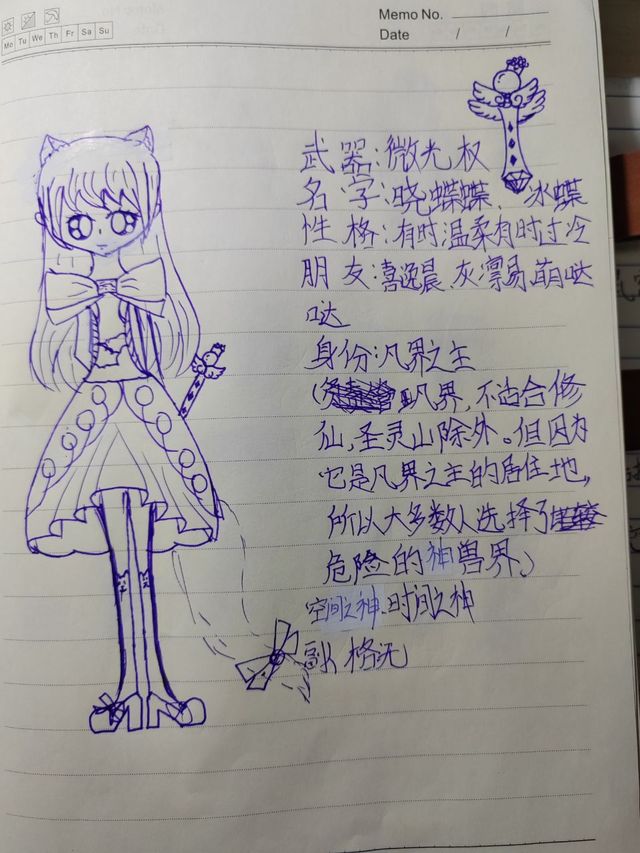 Memo No.
Mo Tu We Th Fr Sa Su
Date / /
武器:微光权
名字:晓蝶蝶、冰蝶
性格:有时温柔有时过冷
朋友:喜逸晨、灰漂易、萌哒
哒
身份:凡界之主
凡界,不适合修
仙,圣灵山除外。但因为
它是凡界之主的居住地,
所以大多数人选择了
危险的神兽界。)
空间之神、时间之神
副人格:无